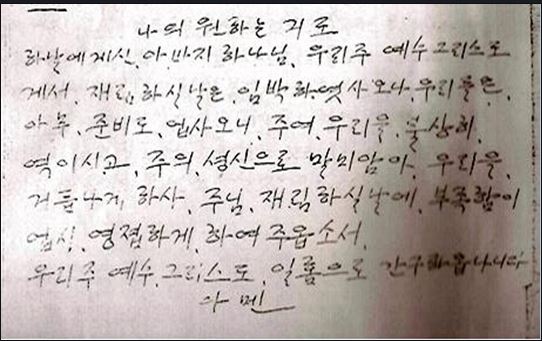 나의 원하는 기도
하날에 게신, 아바지 하나님, 우리주 예수 그리스도
게서, 재림, 하실날은, 임박 하엿사오나, 우리들은,
아무, 준비도, 업사오니, 주여, 우리을, 불상히,
역이시고, 주의, 셩신으로 말미암아, 우리을,
거듭나게, 하사, 주님, 재림하실날에, 부족함이
업시, 영졉하게, 하여 주옵소서,
우리주 예수, 그리스도, 일홈으로 간구하옵나니다
아멘